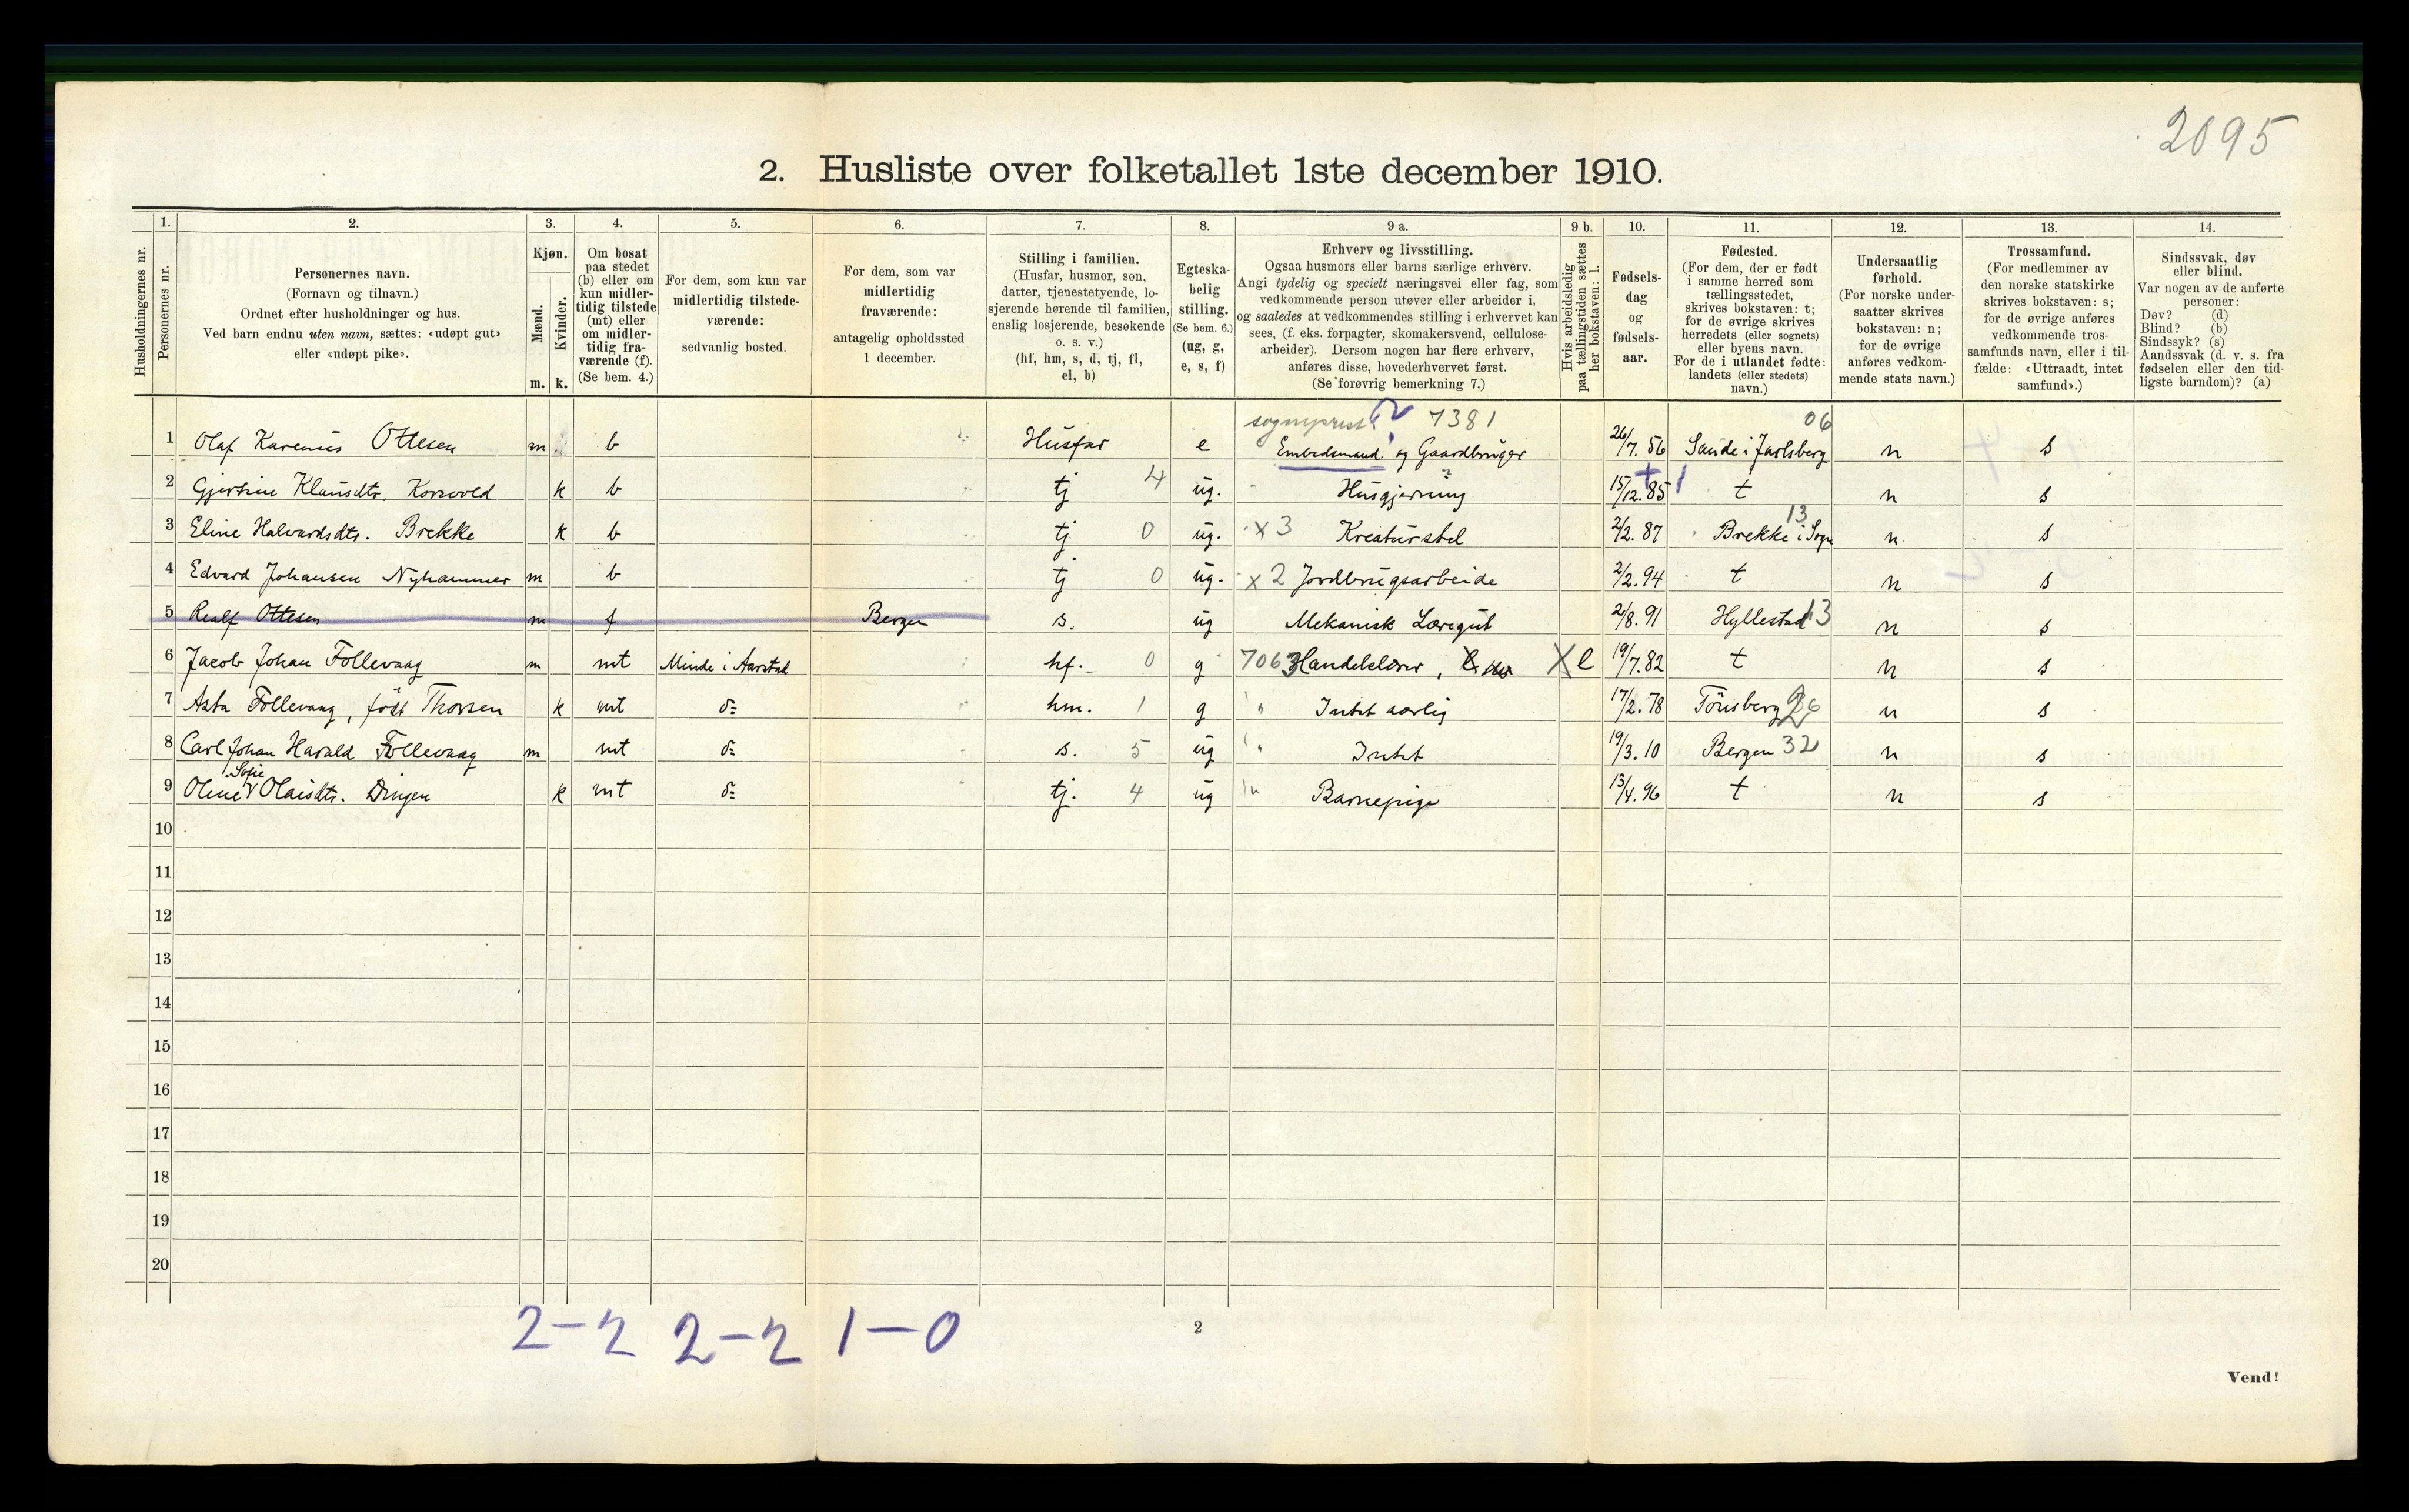 2095
2. Husliste over folketallet 1ste december 1910.
Husholdningernes nr.
1.
Personernes nr.
2.
Personernes navn.
(Fornavn og tilnavn.)
Ordnet efter husholdninger og hus.
Ved barn endnu uten navn, sættes: «udøpt gut»
eller «udøpt pike».
3.
Kjøn.
Mænd.
Kvinder.
m. k.
4.
Om bosat
paa stedet
(b) eller om
kun midler-
tidig tilstede
(mt) eller
om midler-
tidig fra-
værende (f).
(Se bem. 4.)
5.
For dem, som kun var
midlertidig tilstede-
værende:
sedvanlig bosted.
6.
For dem, som var
midlertidig
fraværende:
antagelig opholdssted
1 december.
7.
Stilling i familien.
(Husfar, husmor, søn,
datter, tjenestetyende, lo-
sjerende hørende til familien,
enslig losjerende, besøkende
o. s. v.)
(hf, hm, s, d, tj, fl,
el, b)
8.
Egteska-
belig
stilling.
(Se bem. 6.)
(ug, g,
e, s, f)
9 a.
Erhverv og livsstilling.
Ogsaa husmors eller barns særlige erhverv.
Angi tydelig og specielt næringsvei eller fag, som
vedkommende person utøver eller arbeider i,
og saaledes at vedkommendes stilling i erhvervet kan
sees, (f. eks. forpagter, skomakersvend, cellulose-
arbeider). Dersom nogen har flere erhverv,
anføres disse, hovederhvervet først.
(Se forøvrig bemerkning 7.)
9 b.
Hvis arbeidsledig
paa tællingstiden sættes
her bokstaven: l.
10.
Fødsels-
dag
og
fødsels-
aar.
11.
Fødested.
(For dem, der er født
i samme herred som
tællingsstedet,
skrives bokstaven: t;
for de øvrige skrives
herredets (eller sognets)
eller byens navn.
For de i utlandet fødte:
landets (eller stedets)
navn.)
12.
Undersaatlig
forhold.
(For norske under-
saatter skrives
bokstaven: n;
for de øvrige
anføres vedkom-
mende stats navn.)
13.
Trossamfund.
(For medlemmer av
den norske statskirke
skrives bokstaven: s;
for de øvrige anføres
vedkommende tros-
samfunds navn, eller i til-
fælde: «Uttraadt, intet
samfund».)
14.
Sindssvak, døv
eller blind.
Var nogen av de anførte
personer:
Døv? (d)
Blind? (b)
Sindssyk? (s)
Aandssvak (d. v. s. fra
fødselen eller den tid-
ligste barndom)? (a)
sogneprest 7381 06
1 Olaf Karenius Ottesen m b Husfar e Embedsmand og Gaardbruger 26/7. 56 Sande i Jarlsberg n s
2 Gjertine Klausdtr. Korsvold k b tj 4 ug. Husgjerning 15/12. 85 t n s
3 Eline Halvardsdtr. Brekke k b tj 0 ug. x 3 Kreaturstel 2/2. 87 Brekke i Sogn 13 n s
4 Edvard Johansen Nyhammer m b tj 0 ug. x 2 Jordbrugsarbeide 2/2. 94 t n s
5 Realf Ottesen m f Bergen s. ug Mekanisk Læregut 2/8. 91 Hyllestad 13 n s
6 Jacob Johan Follevaag m mt Minde i Aarstad hf. 0 g 7063 Handelslærer, X l 19/7. 82 t n s
7 Asta Follevaag, født Thorsen k mt do hm. 1 g " Intet særlig 17/2. 78 Tönsberg 26 n s
8 Carl Johan Harald Follevaag m mt do s. 5 ug " Intet 19/3. 10 Bergen 32 n s
9 Oline Sofie Olaisdtr. Dingen k mt do tj. 4 ug " Barnepige 13/4. 96 t n s
10
11
12
13
14
15
16
17
18
19
20
2-2 2-2 1-0
2
Vend!